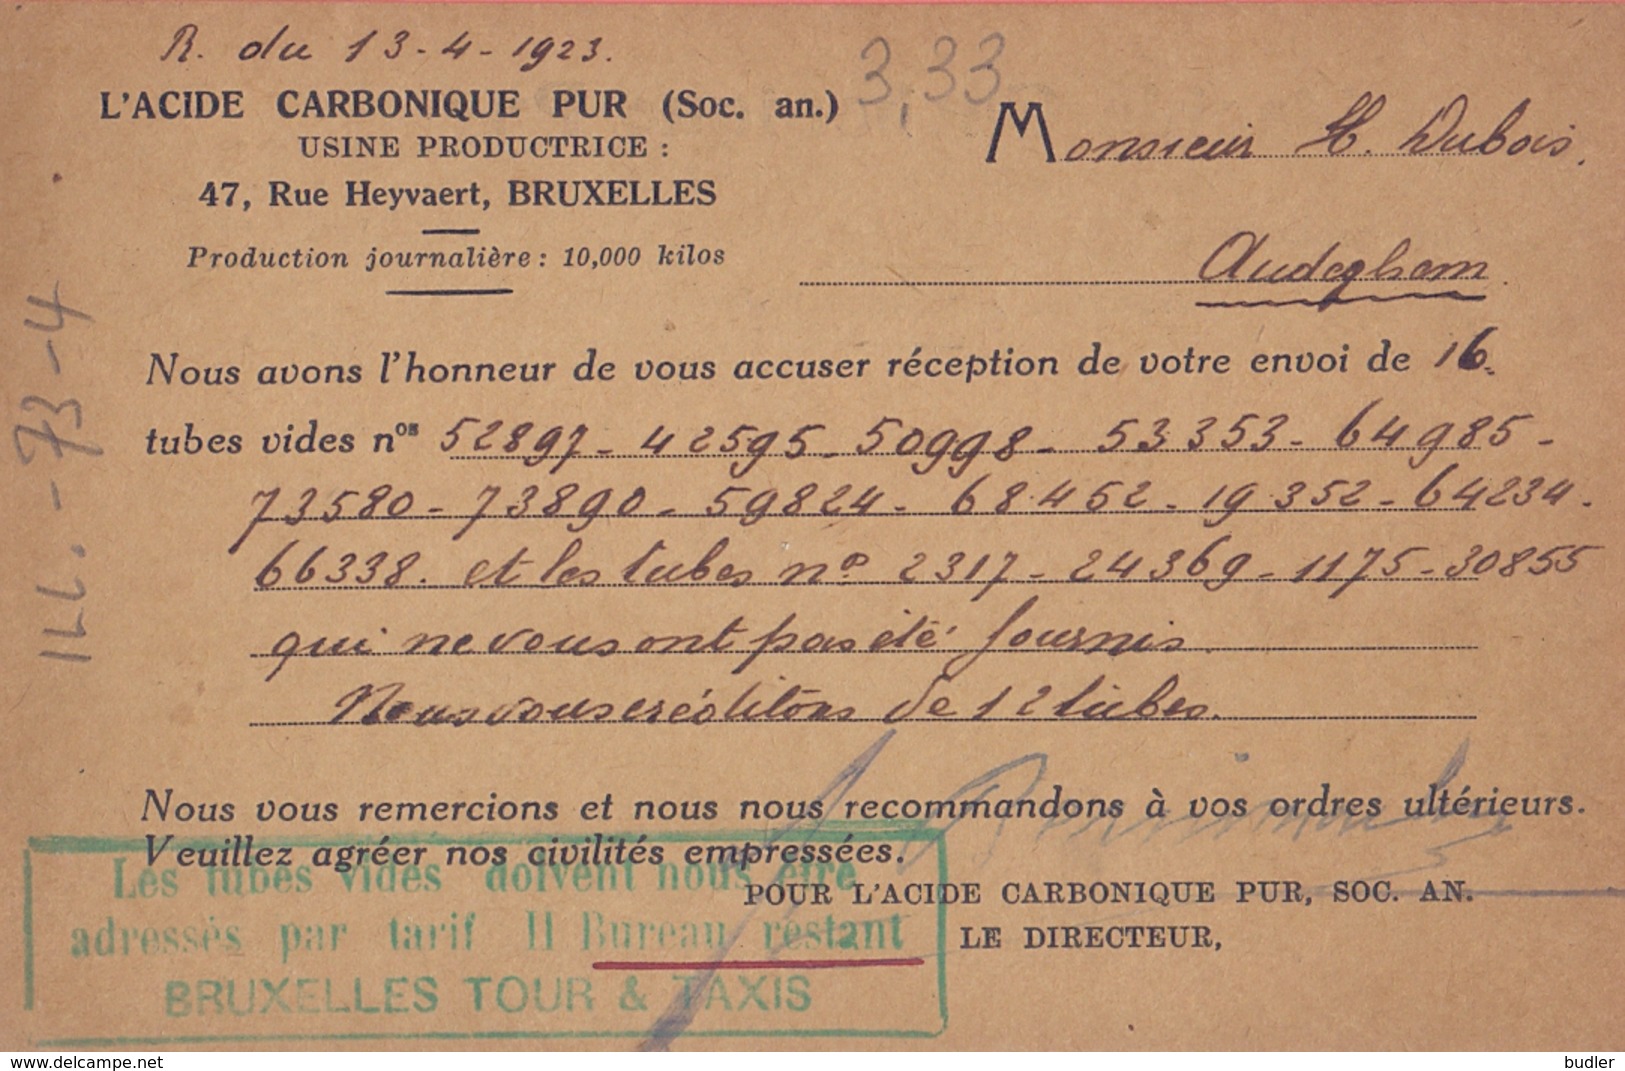 R. du 13-4-1923.
3,33
L'ACIDE CARBONIQUE PUR (Soc. an.)
USINE PRODUCTRICE :
47, Rue Heyvaert, BRUXELLES
Production journalière : 10,000 kilos
Monsieur H. Dubois.
Audeghem.
Nous avons l'honneur de vous accuser réception de votre envoi de 16.
tubes vides nos 52897 - 42595 - 50998 - 53353 - 64985 -
73580 - 73890 - 59824 - 68452 - 19352 - 64234.
66338. et les tubes no 2317 - 24369 - 1175 - 30855
qui ne vous ont pas été fournis.
Nous vous créditons de 12 tubes.
Nous vous remercions et nous nous recommandons à vos ordres ultérieurs.
Veuillez agréer nos civilités empressées.
POUR L'ACIDE CARBONIQUE PUR, SOC. AN.
LE DIRECTEUR,
Les tubes vides doivent nous être
adressés par tarif II Bureau restant
BRUXELLES TOUR & TAXIS
delcampe.net
budler